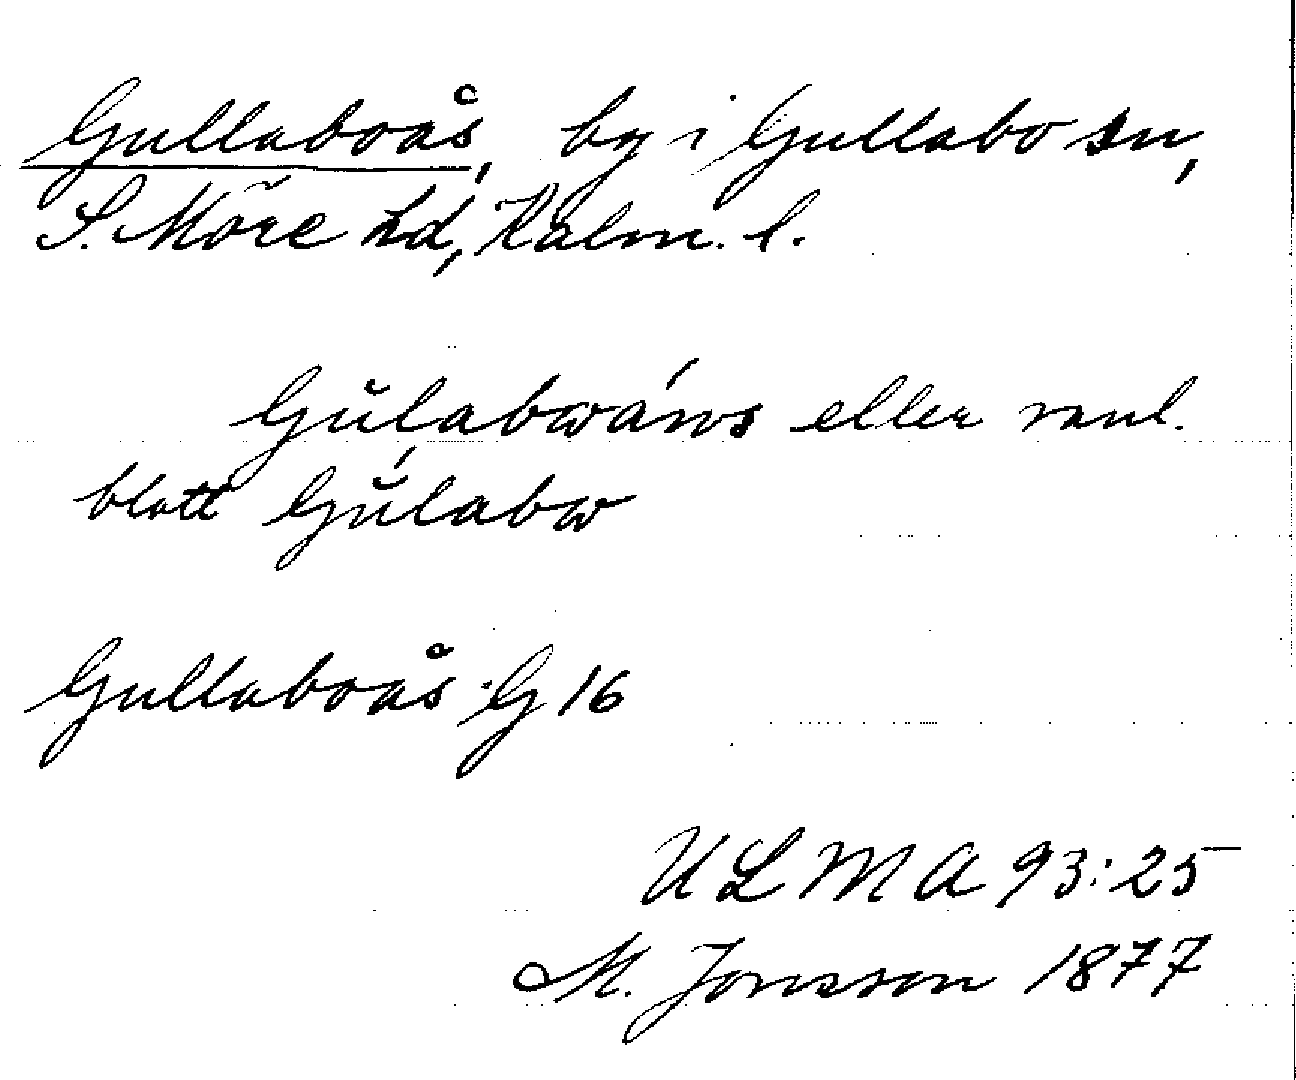 Gullaboås, by i Gullabo sn,
S. Möre hd, Kalm. l.
Gŭlabwáws eller vanl.
blott Gŭ́labw
Gullaboås G 16
ULMA 93:25
M. Jonsson 1877